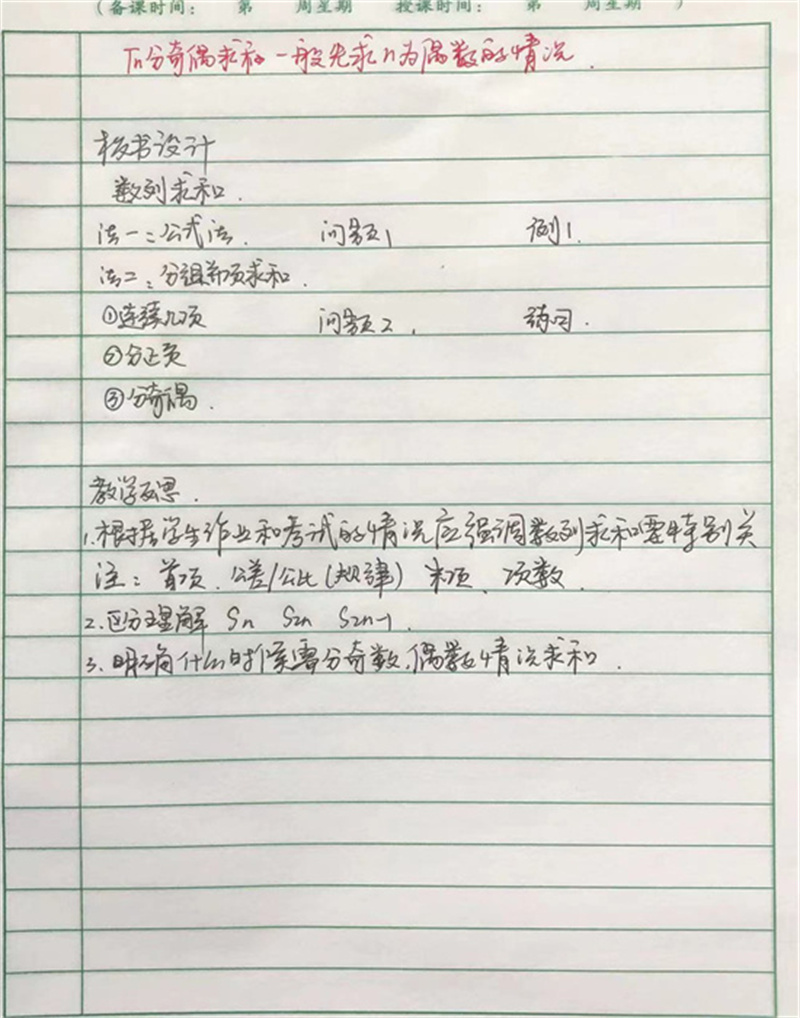 (备课时间: 第 周星期 授课时间: 第 周星期 )
Tn分奇偶求和一般先求n为偶数的情况.
板书设计
数列求和.
法一:公式法. 问题1 例1.
法二:分组并项求和.
①连续几项 问题2. 练习.
②分正负
③分奇偶.
教学反思.
1.根据学生作业和考试的情况应强调数列求和要特别关
注:首项、公差/公比(规律)末项、项数.
2.区分理解 Sn S2n S2n-1.
3.明确什么时候需分奇数,偶数情况求和.